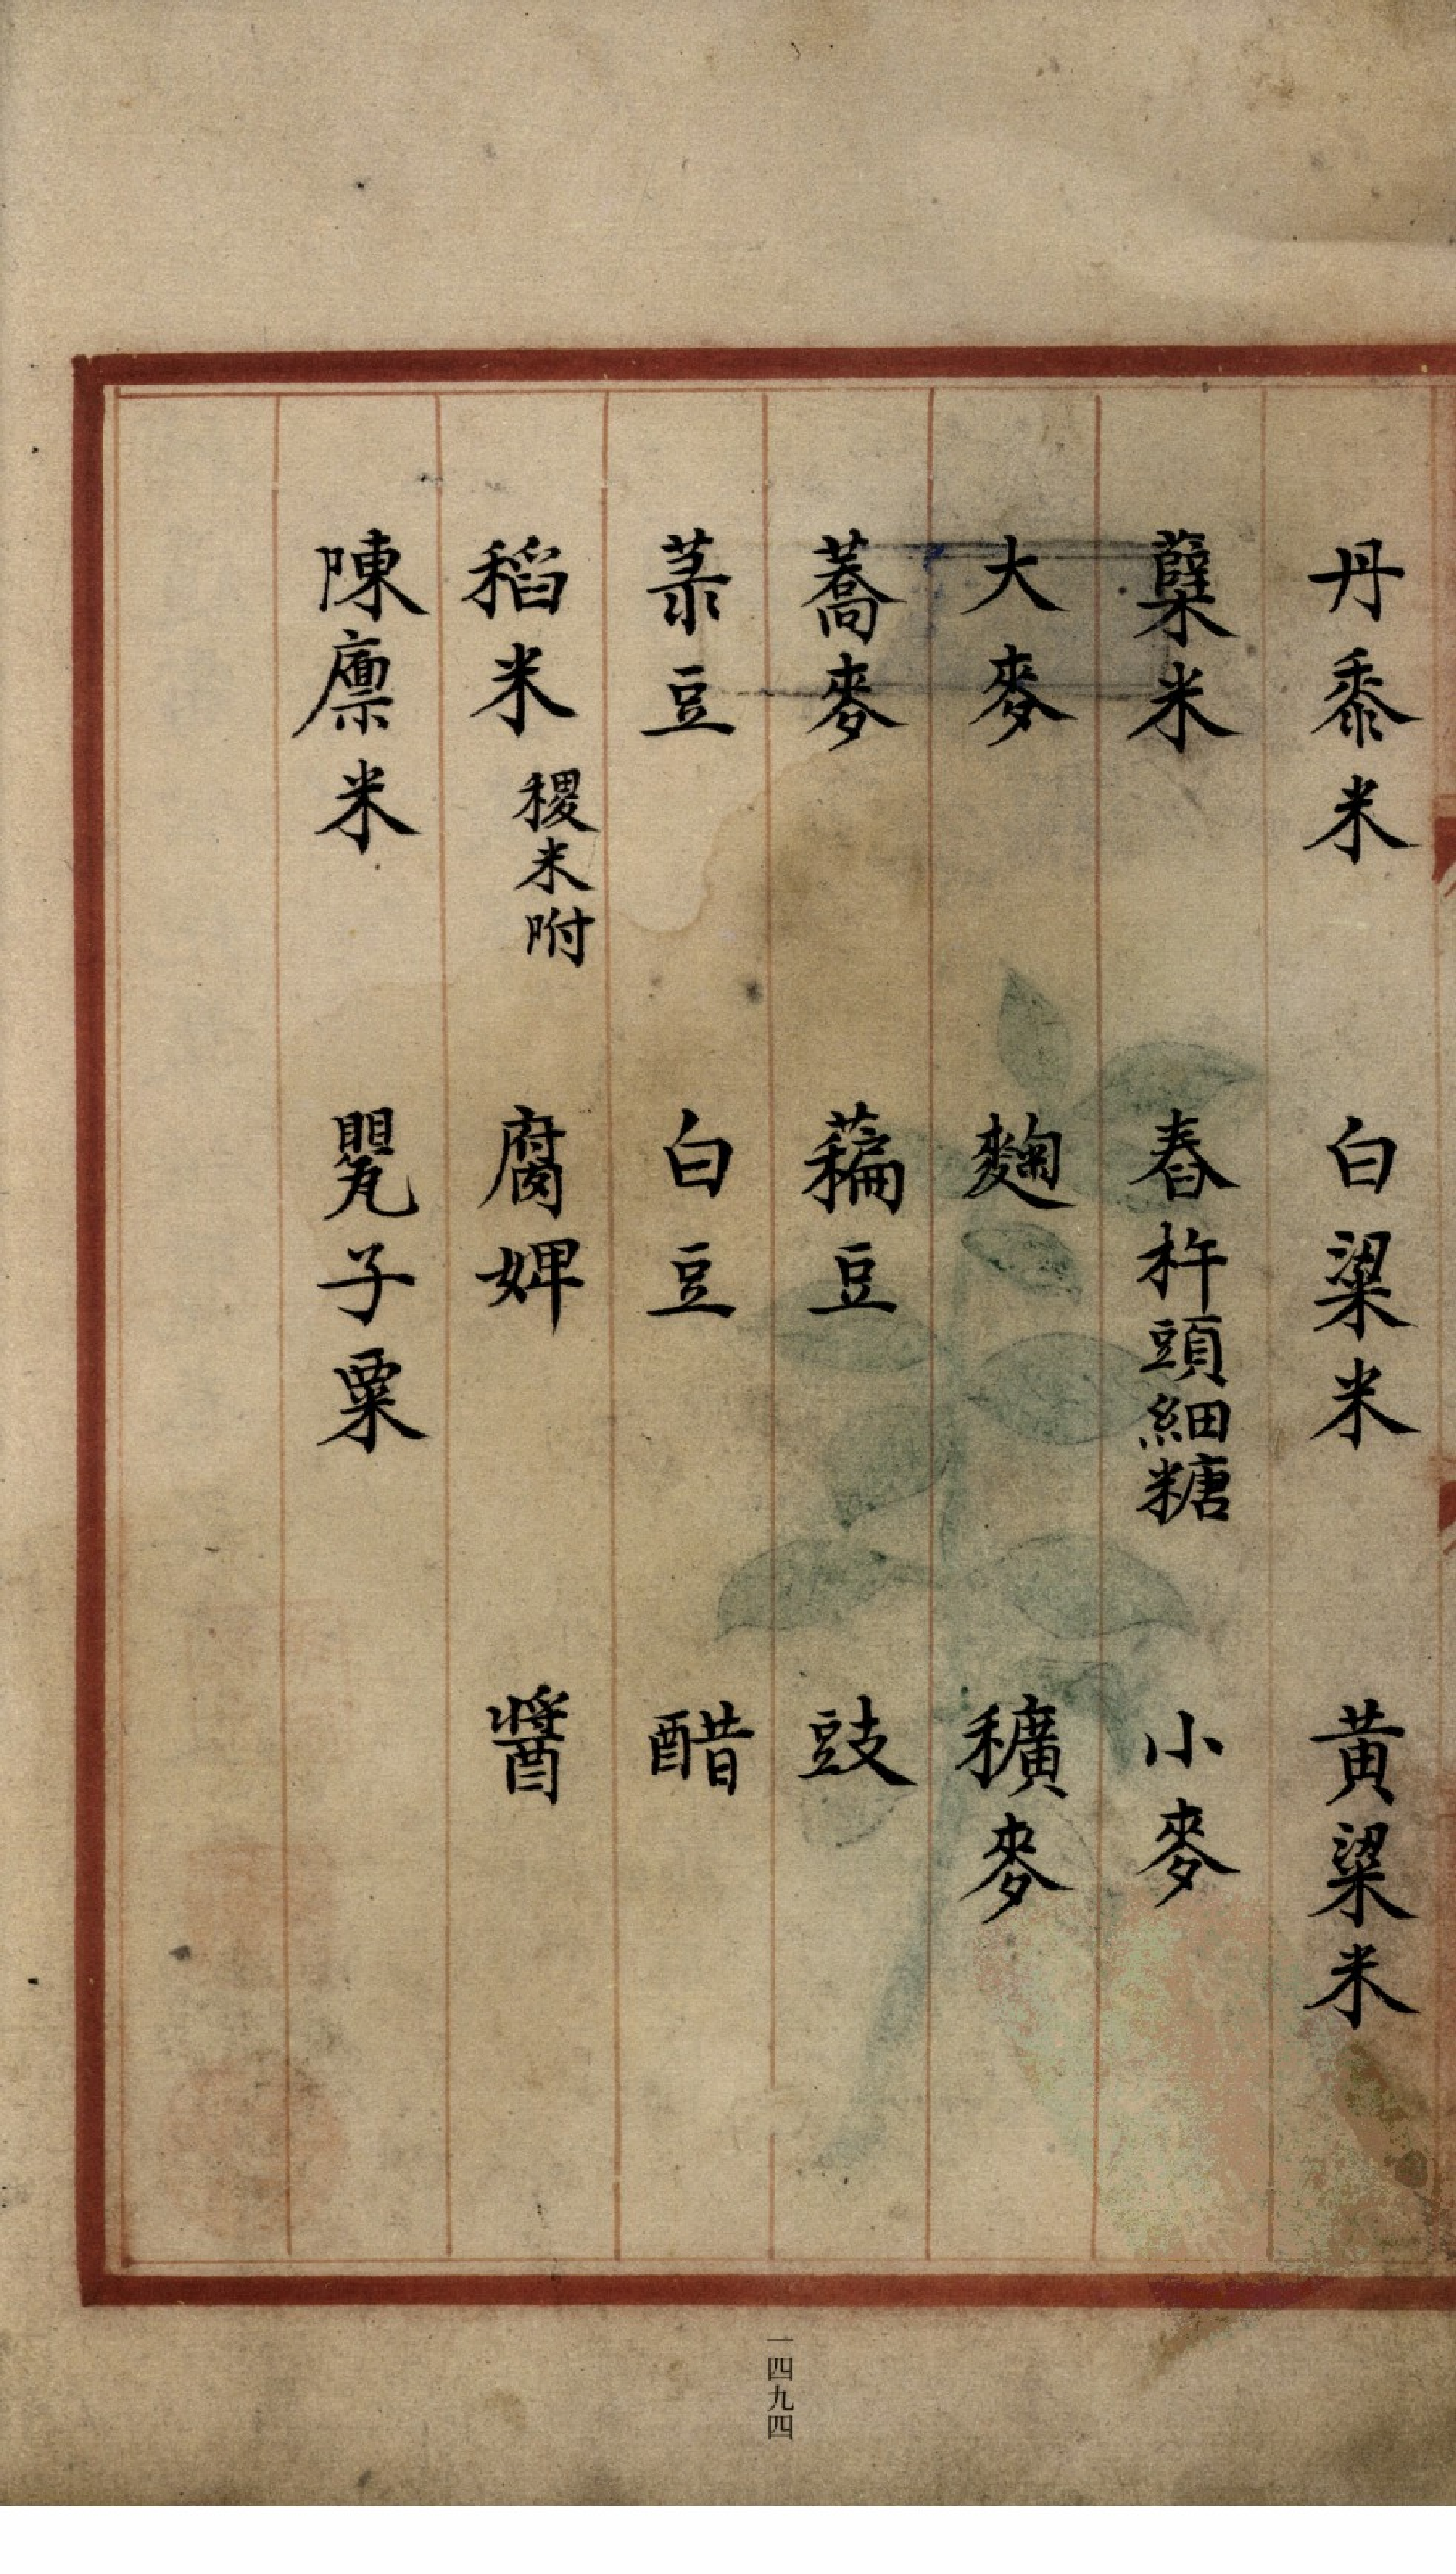 丹黍米　白粱米　黃粱米
糵米　舂杵頭細糖　小麥
大麥　麴　穬麥
蕎麥　藊豆　豉
菉豆　白豆　醋
稻米 稷米附　腐婢　醬
陳廪米　甖子粟
一四九四